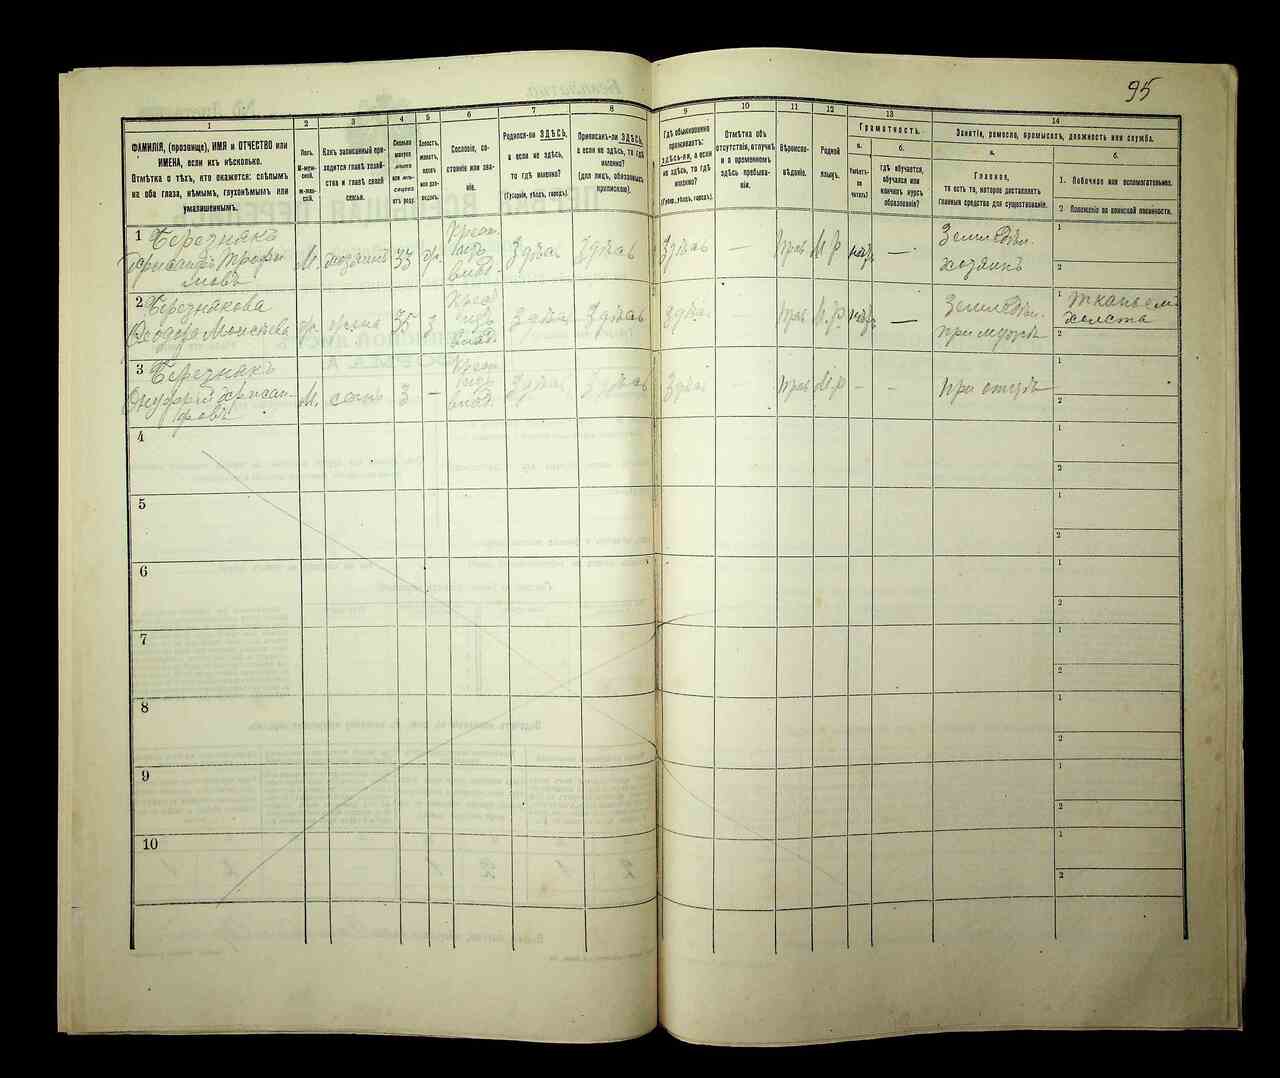 95
1
2
3
4
5
6
7
8
9
10
11
12
13
14
ФАМИЛІЯ, (прозвище), ИМЯ и ОТЧЕСТВО или
ИМЕНА, если ихъ нѣсколько.
Отмѣтка о тѣхъ, кто окажется: слѣпымъ
на оба глаза, нѣмымъ, глухонѣмымъ или
умалишеннымъ.
Полъ.
М-муж-
ской.
Ж-жен-
скій.
Какъ записанный при-
ходится главѣ хозяй-
ства и главѣ своей
семьи.
Сколько
минуло
лѣтъ
или мѣ-
сяцевъ
отъ роду.
Холостъ,
женатъ,
вдовъ
или раз-
веденъ.
Сословіе, со-
стояніе или зва-
ніе.
Родился-ли ЗДѢСЬ,
а если не здѣсь,
то гдѣ именно?
(Губернія, уѣздъ, городъ).
Приписанъ-ли ЗДѢСЬ,
а если не здѣсь, то гдѣ
именно?
(для лицъ, обязанныхъ
припиской).
Гдѣ обыкновенно
проживаетъ:
ЗДѢСЬ-ЛИ, а если
не здѣсь, то гдѣ
именно?
(Губер., уѣздъ, городъ).
Отмѣтка объ
отсутствіи, отлучкѣ
и о временномъ
здѣсь пребыва-
ніи.
Вѣроиспо-
вѣданіе.
Родной
языкъ.
Грамотность.
а.
Умѣетъ-
ли
читать?
б.
гдѣ обучается,
обучался или
кончилъ курсъ
образованія?
Занятіе, ремесло, промыселъ, должность или служба.
а.
Главное,
то есть то, которое доставляетъ
главныя средства для существованія.
б.
1. Побочное или вспомогательное.
2. Положеніе по воинской повинности.
1 Березнякъ
Трофи
мовъ
М. хозяинъ 33
Крест.
влад.
Здѣсь Здѣсь Здѣсь — Прав. М.Р —
Земледѣл.
хозяинъ
1
2
2 Березнякова
Феодора Моисеева
жена 35 З
Крест.
влад.
Здѣсь Здѣсь Здѣсь — Прав. М.Р —
Земледѣл.
при мужѣ
1 Тканьемъ
холста
2
3 Березнякъ
М. сынъ 3 —
Крест.
влад.
Здѣсь Здѣсь Здѣсь — Прав М.Р — —
При отцѣ
1
2
4
1
2
5
1
2
6
1
2
7
1
2
8
1
2
9
1
2
10
1
2